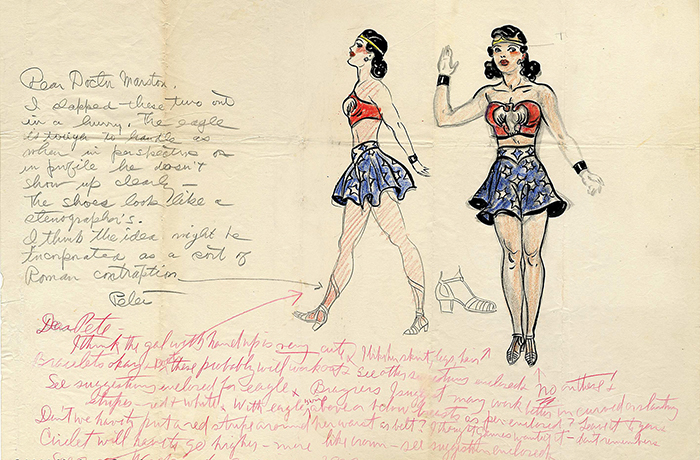 Dear Doctor Marston,
I slapped these two out
in a hurry. The eagle
is tough to handle as
when in perspective or
in profile he doesn't
show up clearly—
The shoes look like a
stenographer's.
I think the idea might be
incorporated as a sort of
Roman contraption
Peter
Dear Pete—
I think the gal with hand up is very cute
Bracelets okay + these probably will work out. See other suggestions enclosed. No on these!
See suggestions enclosed for eagle
stripes—red + white. With eagle's wings above or below breasts as per enclosed? Leave it to you.
Don't we have to put a red stripe around her waist as belt? I thought Gaines wanted it—don't remember.
Circlet will have to go higher—more like crown—see suggestion enclosed.